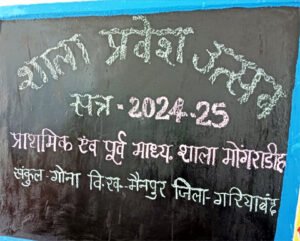 शाला प्रवेश उत्सव
सत्र - 2024-25
प्राथमिक एवं पूर्व माध्य. शाला मोंगराडीह
संकुल - गोना वि.ख.-मैनपुर जिला-गरियाबंद